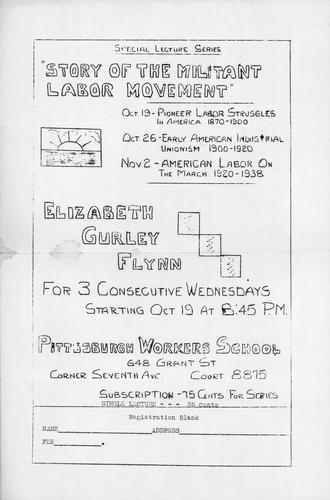 SPECIAL LECTURE SERIES
"STORY OF THE MILITANT
LABOR MOVEMENT"
OCT 19 - PIONEER LABOR STRUGGLES
IN AMERICA 1870-1900
OCT 26 - EARLY AMERICAN INDUSTRIAL
UNIONISM 1900-1920
NOV 2 - AMERICAN LABOR ON
THE MARCH 1920-1938
ELIZABETH
GURLEY
FLYNN
FOR 3 CONSECUTIVE WEDNESDAYS
STARTING OCT 19 AT 8:45 P.M.
PITTSBURGH WORKERS SCHOOL
648 GRANT ST.
CORNER SEVENTH AVE. COURT 8875
SUBSCRIPTION - 75 CENTS FOR SERIES
SINGLE LECTURE - - - 35 Cents
Registration Blank
NAME ADDRESS
FEE